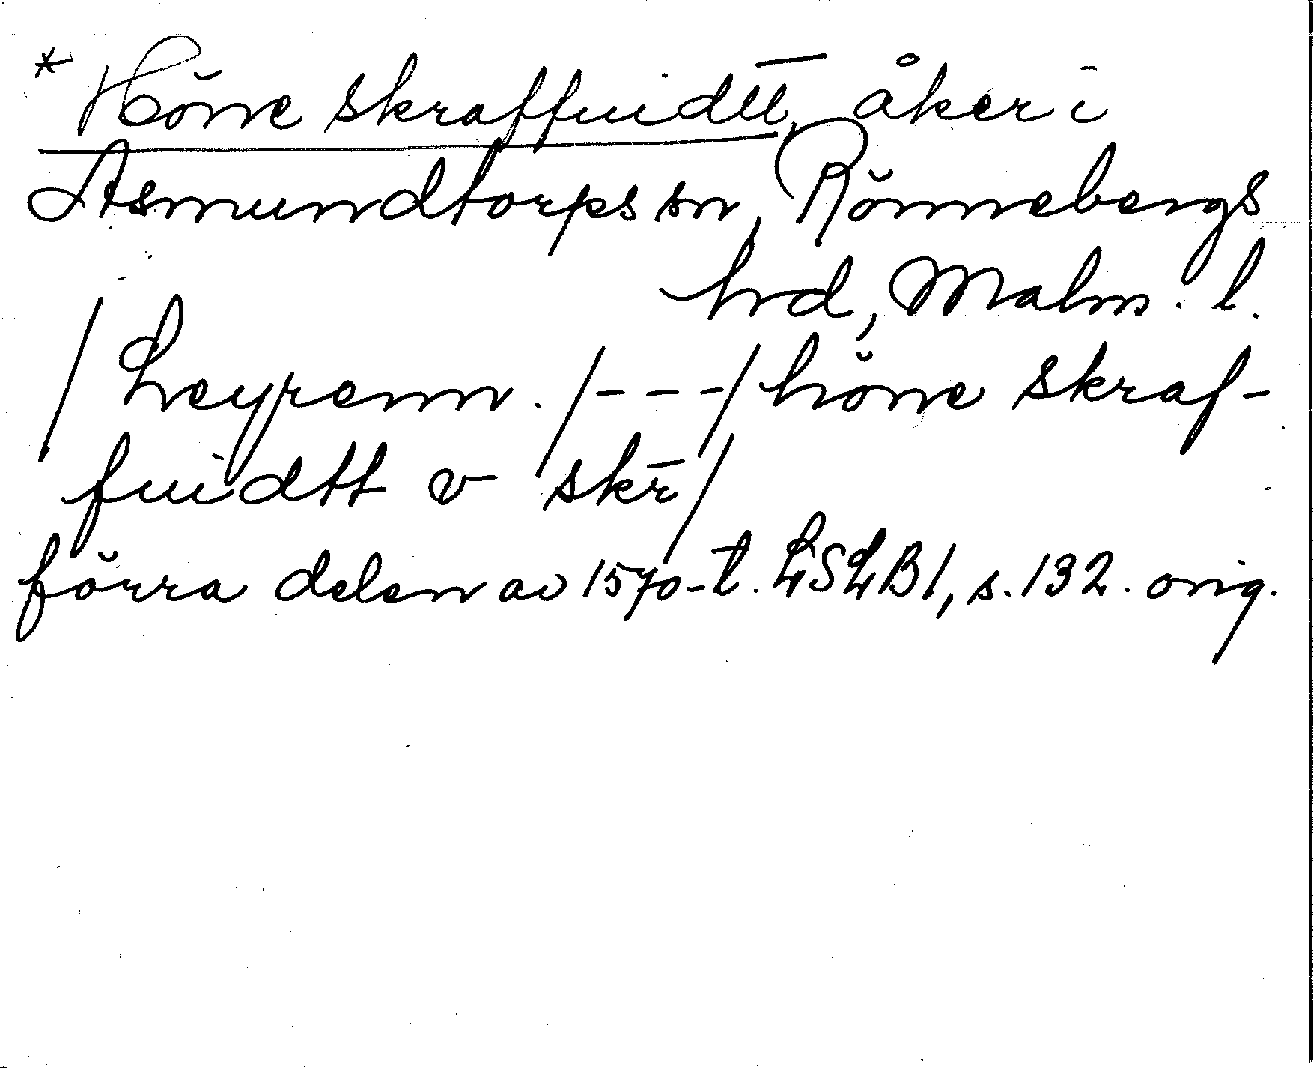 * Höne skraffuidtt, åker i
Asmundtorps sn, Rönnebergs
hrd, Malm. l.
/Leyrenn. /---/ höne skraf-
fuidtt v skr̄/
förra delen av 1570-t. LSLB1, s. 132. orig.